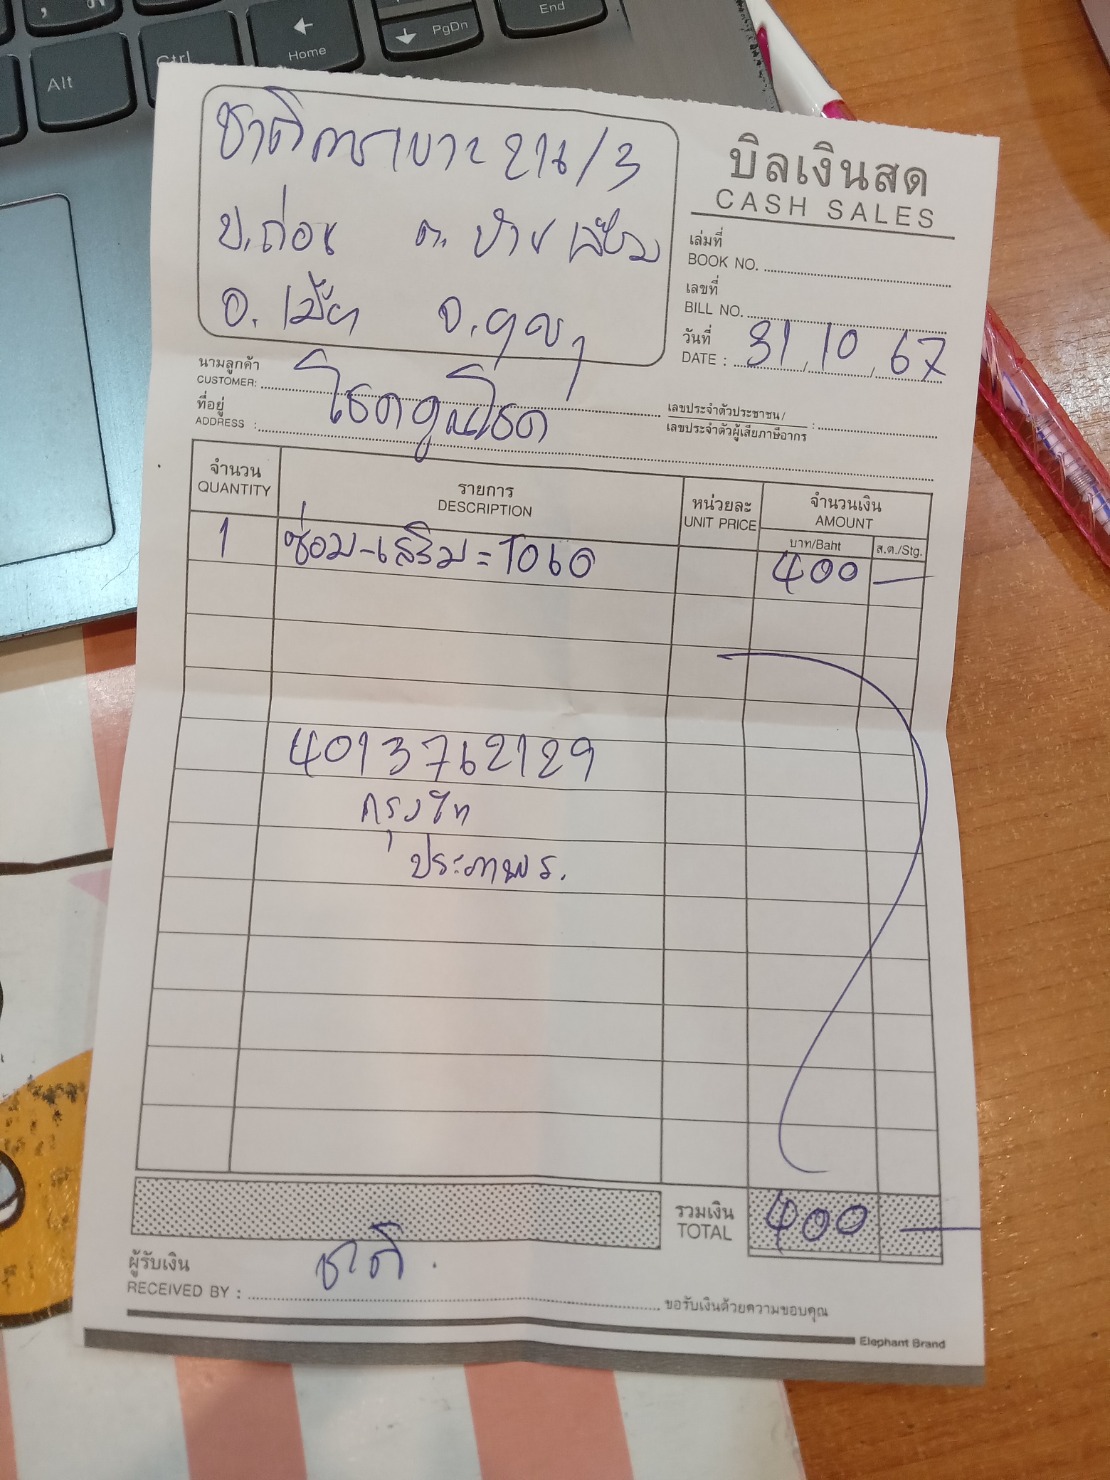 Alt
Ctrl
Home
PgDn
End
ชาติการเบาะ
บิลเงินสด
CASH SALES
เล่มที่
BOOK NO.
เลขที่
BILL NO.
วันที่
DATE : 31, 10, 67
นามลูกค้า
CUSTOMER: โชคคูณโชค
ที่อยู่
ADDRESS :
เลขประจำตัวประชาชน/
เลขประจำตัวผู้เสียภาษีอากร :
จำนวน รายการ หน่วยละ จำนวนเงิน
QUANTITY DESCRIPTION UNIT PRICE AMOUNT
บาท/Baht ส.ต./Stg.
1 ซ่อม-เสริม = โตโต้ 400 —
4013762129
กรุงไทย
ประภาพร.
รวมเงิน
TOTAL 400 —
ผู้รับเงิน
RECEIVED BY : ชาติ.
ขอรับเงินด้วยความขอบคุณ
Elephant Brand